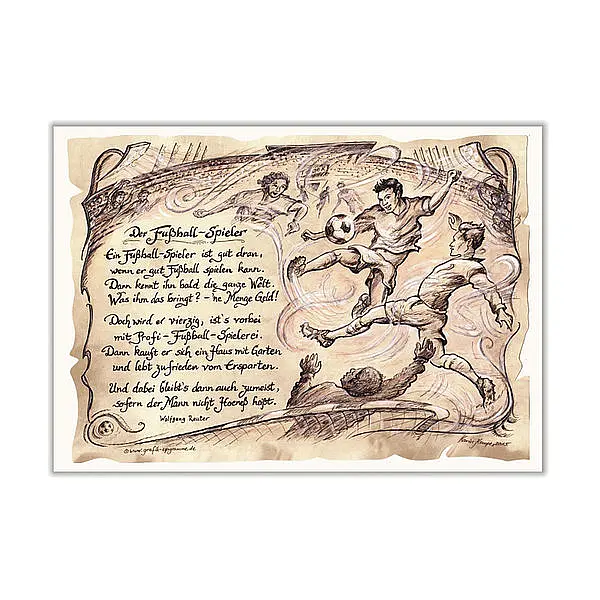 Der Fußball-Spieler
Ein Fußball-Spieler ist gut dran,
wenn er gut Fußball spielen kann.
Dann kennt ihn bald die ganze Welt.
Was ihm das bringt? - 'ne Menge Geld!
Doch wird er vierzig, ist's vorbei
mit Profi-Fußball-Spielerei.
Dann kauft er sich ein Haus mit Garten
und lebt zufrieden vom Ersparten.
Und dabei bleibt's dann auch zumeist,
sofern der Mann nicht Hoeneß heißt.
Wolfgang Reuter